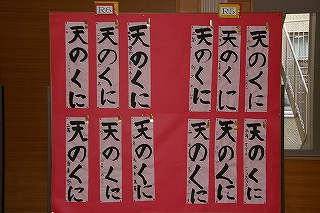 R6
R5
天のくに
天のくに
天のくに
天のくに
天のくに
天のくに
天のくに
天のくに
天のくに
天のくに
天のくに
天のくに